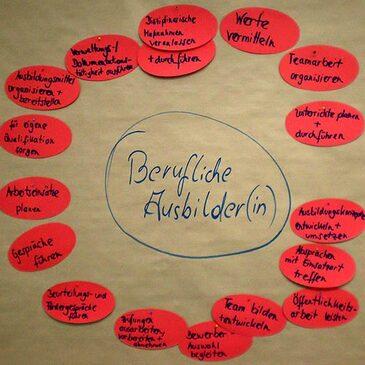 Berufliche
Ausbilder(in)
Disziplinarische
Maßnahmen
veranlassen
+ durchführen
Werte
vermitteln
Teamarbeit
organisieren
Unterrichte planen
+
durchführen
Ausbildungskonzepte
entwickeln +
umsetzen
Absprachen
mit Einsatzort
treffen
Öffentlichkeits-
arbeit leisten
Team bilden
+ entwickeln
Bewerber-
Auswahl
begleiten
Prüfungen
ausarbeiten,
vorbereiten +
abnehmen
Beurteilungs- und
Fördergespräche
führen
Gespräche
führen
Arbeitseinsätze
planen
für eigene
Qualifikation
sorgen
Ausbildungsmittel
organisieren +
bereitstellen
Verwaltungs-/
Dokumentations-
tätigkeit ausführen